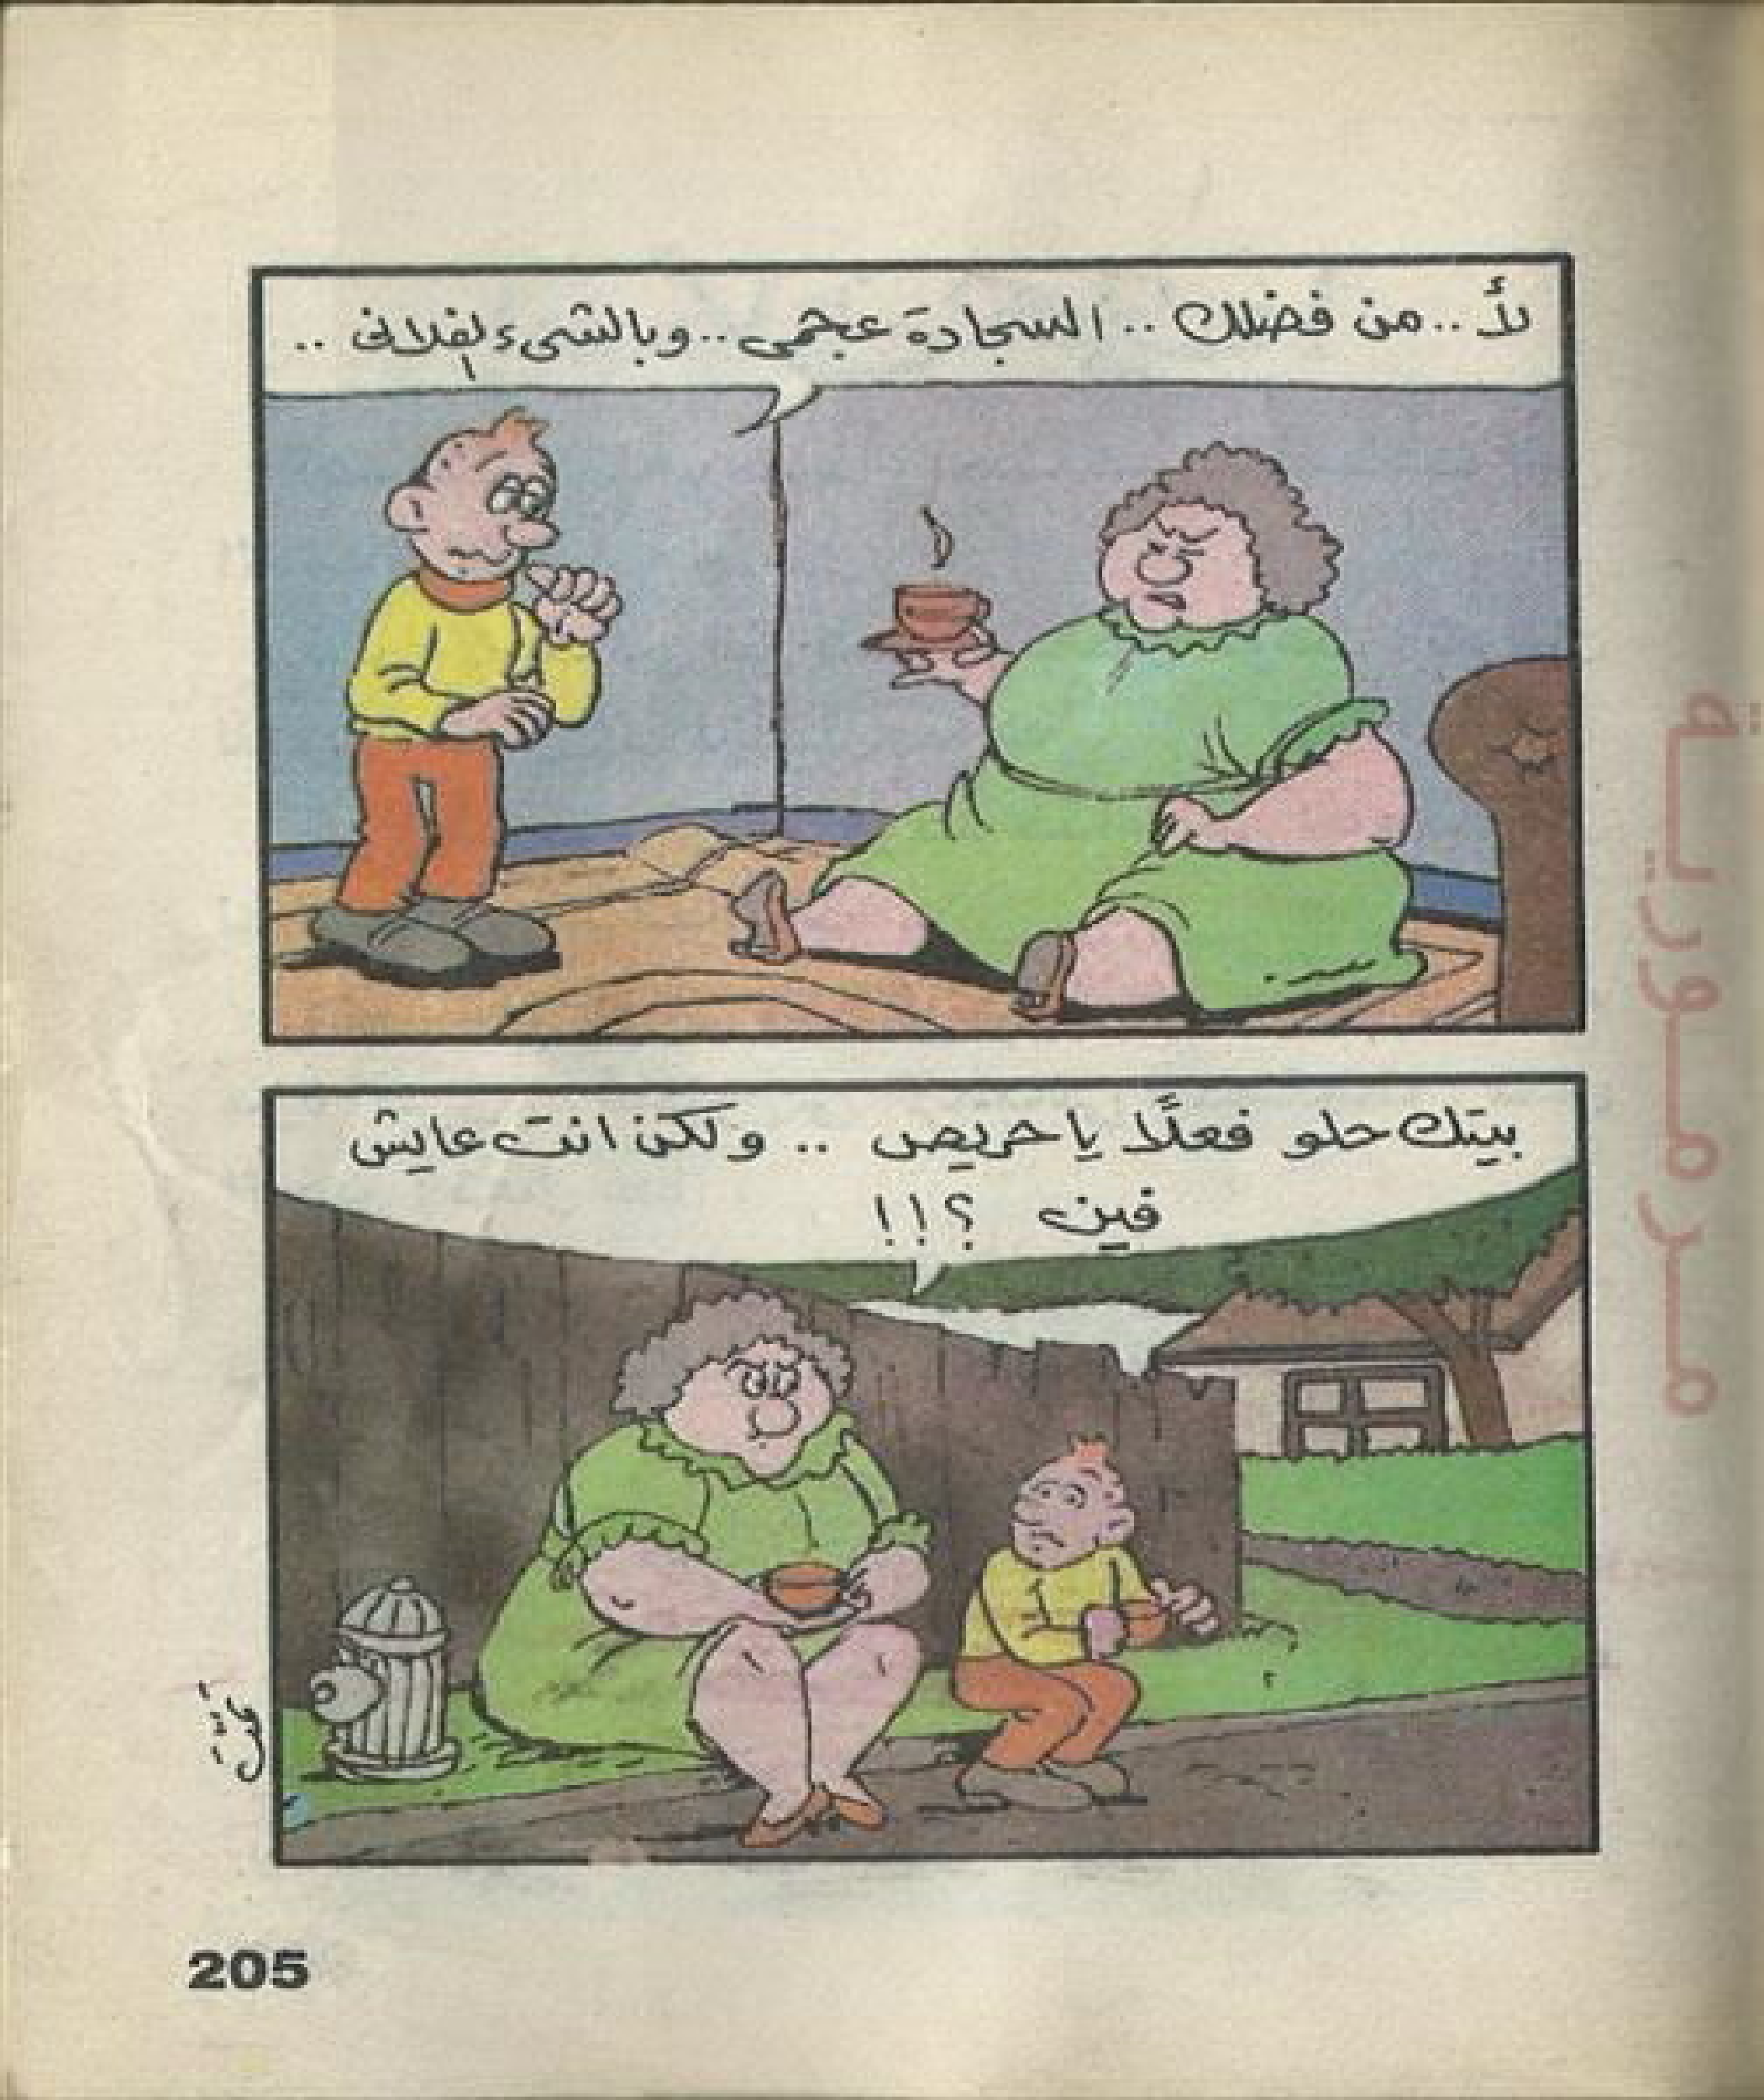 لأ .. من فضلك .. السجادة عجمى .. وبالشىء الفلانى ..
بيتك حلو فعلًا يا حريص .. ولكن انت عايش
فين ؟!!
205